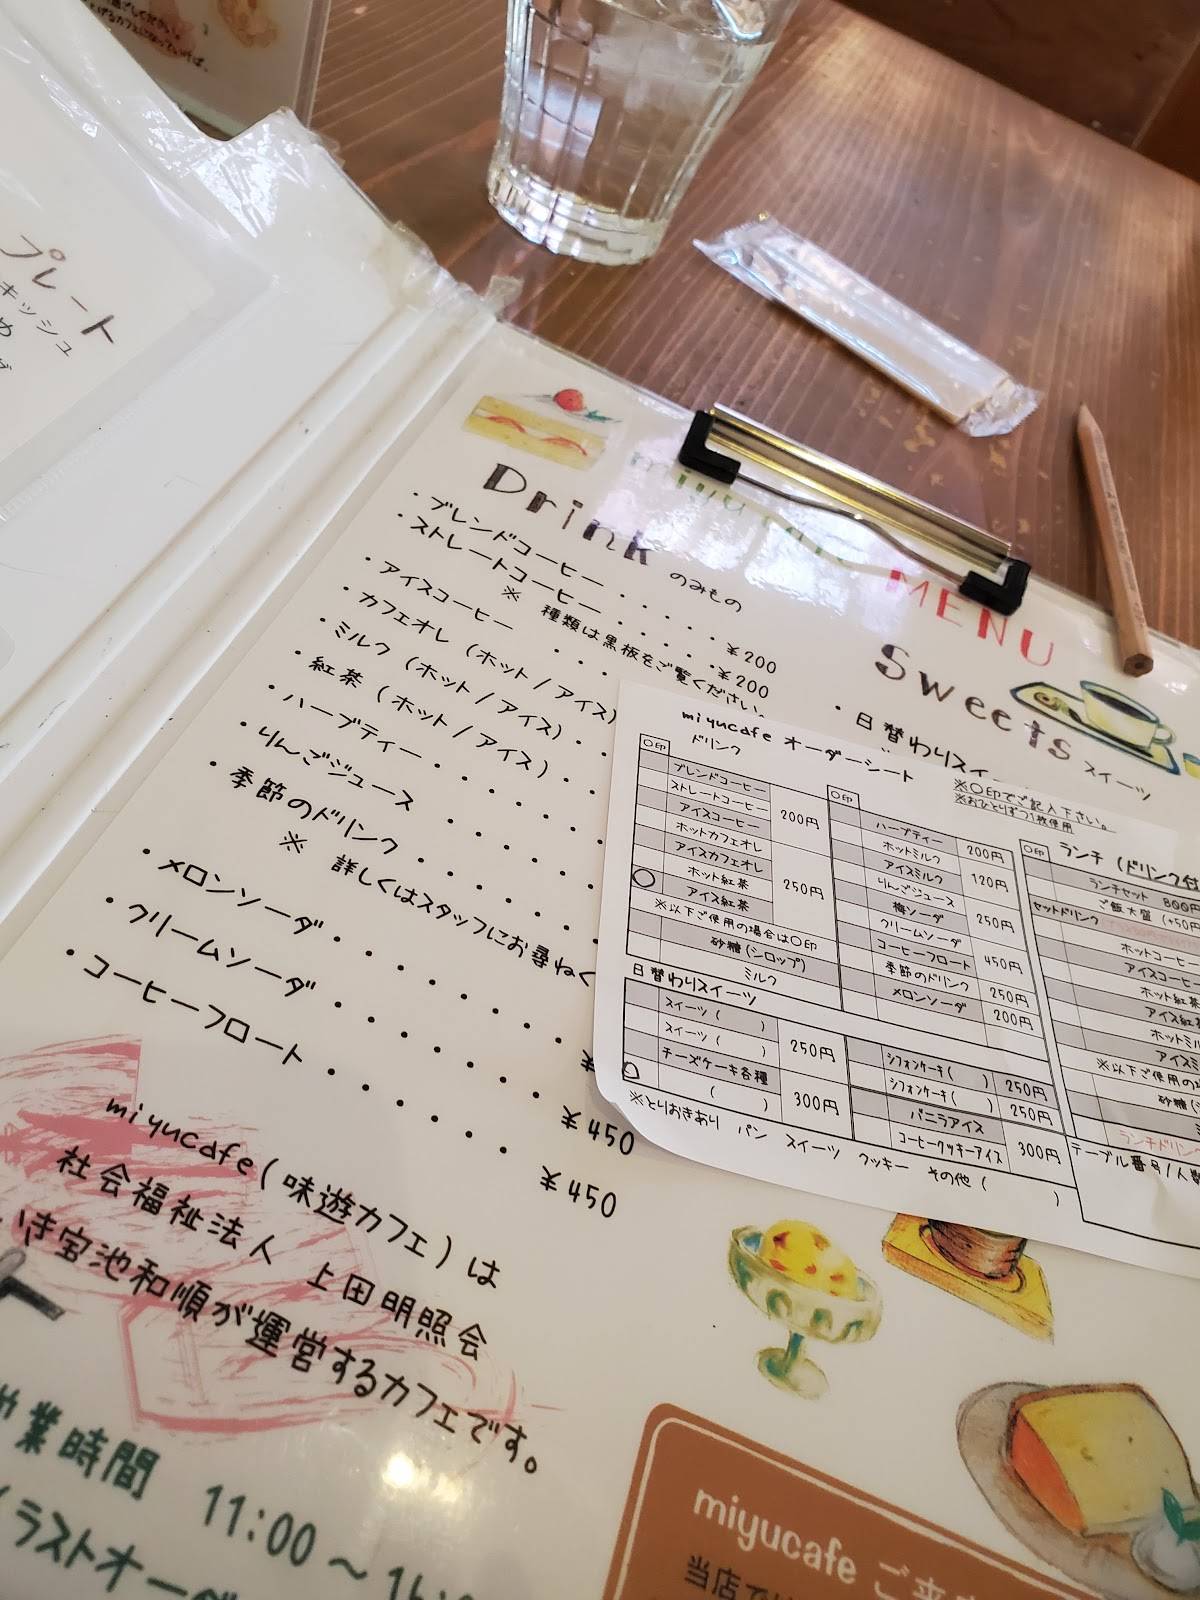 プレート
キッシュ
miyu cafe
MENU
Drink のみもの
・ブレンドコーヒー・・・・・・¥200
・ストレートコーヒー・・・・・¥200
※ 種類は黒板をご覧ください。
・アイスコーヒー・・・
・カフェオレ（ホット/アイス）
・ミルク（ホット/アイス）・・
・紅茶（ホット/アイス）・
・ハーブティー・・・・・
・りんごジュース・・・・・
・季節のドリンク・・・・・
※ 詳しくはスタッフにお尋ねく
・メロンソーダ・・・・・・・¥
・クリームソーダ・・・・・・¥450
・コーヒーフロート・・・・・¥450
Sweets スイーツ
・日替わりスイー
miyucafe オーダーシート
※○印でご記入下さい。
※おひとりずつ1枚使用
ドリンク
○印
ブレンドコーヒー
ストレートコーヒー
アイスコーヒー
200円
ホットカフェオレ
アイスカフェオレ
ホット紅茶
アイス紅茶
250円
※以下ご使用の場合は○印
砂糖(シロップ)
ミルク
○印
ハーブティー 200円
ホットミルク
アイスミルク
120円
りんごジュース
梅ソーダ
250円
クリームソーダ
コーヒーフロート
450円
季節のドリンク 250円
メロンソーダ 200円
○印
ランチ（ドリンク付
ランチセット 800円
ご飯大盛 (+50円
セットドリンク
ホットコーヒー
アイスコーヒー
ホット紅茶
アイス紅茶
ホットミル
アイスミ
※以下ご使用の場
砂糖(シ
ミ
ランチドリン
日替わりスイーツ
スイーツ（　　）
スイーツ（　　）
250円
チーズケーキ各種
（　　）
300円
シフォンケーキ（　　） 250円
シフォンケーキ（　　） 250円
バニラアイス
コーヒークッキーアイス
300円
※とりおきあり パン スイーツ クッキー その他（　　）
テーブル番号/人数
miyucafe（味遊カフェ）は
社会福祉法人 上田明照会
いき宮池和順が運営するカフェです。
業時間 11:00 ～ 16:
ラストオーダ
miyucafe ご来
当店で